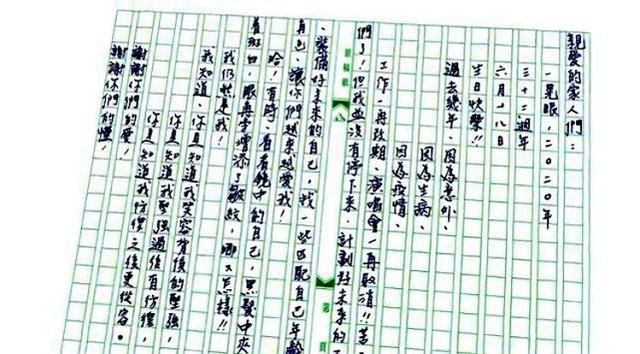 親愛的家人們:
一晃眼,二〇二〇年
三十二週年
六月十八日
生日快樂!!
過去幾年、因為意外、
因為生病、
因為疫情、
工作一再改期、演唱會一再取消!!苦
們了!但我並沒有停下來,計劃好未來的
第 頁
、裝備好未來的自己,找一些匹配自己年齡
自己、讓你們越來越愛我!
哈!有時、看看鏡中的自己,黑髮中夾
著斑白,眼角增添了皺紋,哪又怎樣!!
我仍然是我!
我知道、你真知道我笑容背後的堅強,
你真知道我堅強過後有彷徨,
你真知道我彷徨之後更從容。
謝謝你們的愛!
謝謝你們的懂!